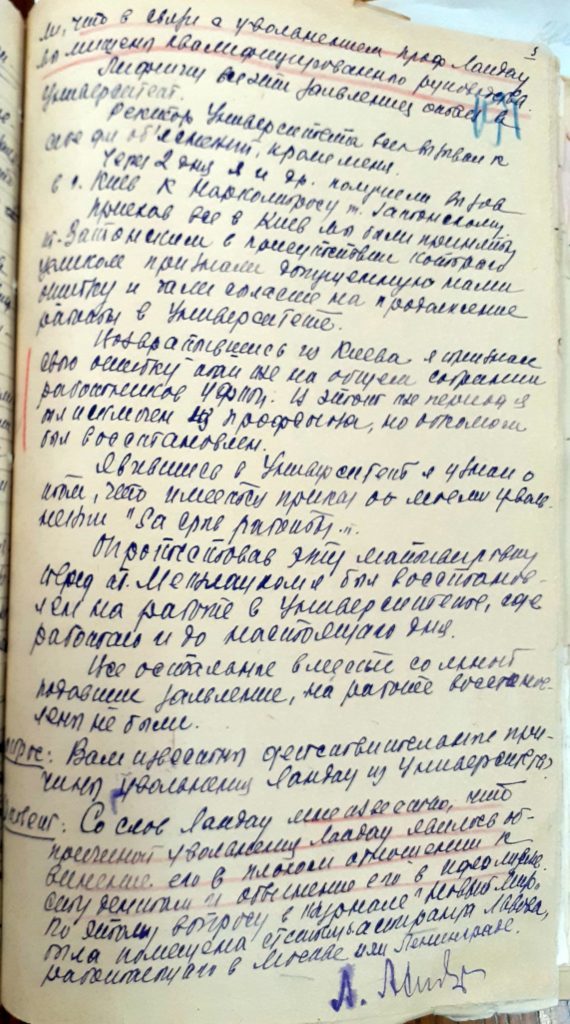 3
ли, что в связи с увольнением проф. Ландау
мы лишены квалифицированного руководства.
Лифшиц все эти заявления отвез в
Университет.
Ректор Университета всех вызвал к
себе для об'яснений, кроме меня.
Через 2 дня я и др. получили вызов
в г. Киев к Наркомпросу т. Затонскому,
приехав все в Киев мы были приняты
т. Затонским в присутствии которого
целиком признали допущенную нами
ошибку и дали согласие на продолжение
работы в Университете.
Возвратившись из Киева я признал
свою ошибку так же на общем собрании
работников УФТИ. В этот же период я
был исключен из профсоюза, но
был восстановлен.
Явившись в Университет я узнал о
том, что имеется приказ о моем уволь-
нении "За срыв работы".
Опротестовав эту мотивировку
перед т. я был восстанов-
лен на работе в Университете, где
работаю и до настоящего дня.
Все остальные вместе со мной
подавшие заявление, на работе восстанов-
лены не были.
Вопрос: Вам известны действительные при-
чины увольнения Ландау из Университета?
Ответ: Со слов Ландау мне известно, что
причиной увольнения Ландау явилось об-
винение его в плохом отношении к
студентам и обвинение его в идеализме.
По этому вопросу в журнале "Новый Мир"
была помещена статья аспиранта
работающего в Москве или Ленинграде.